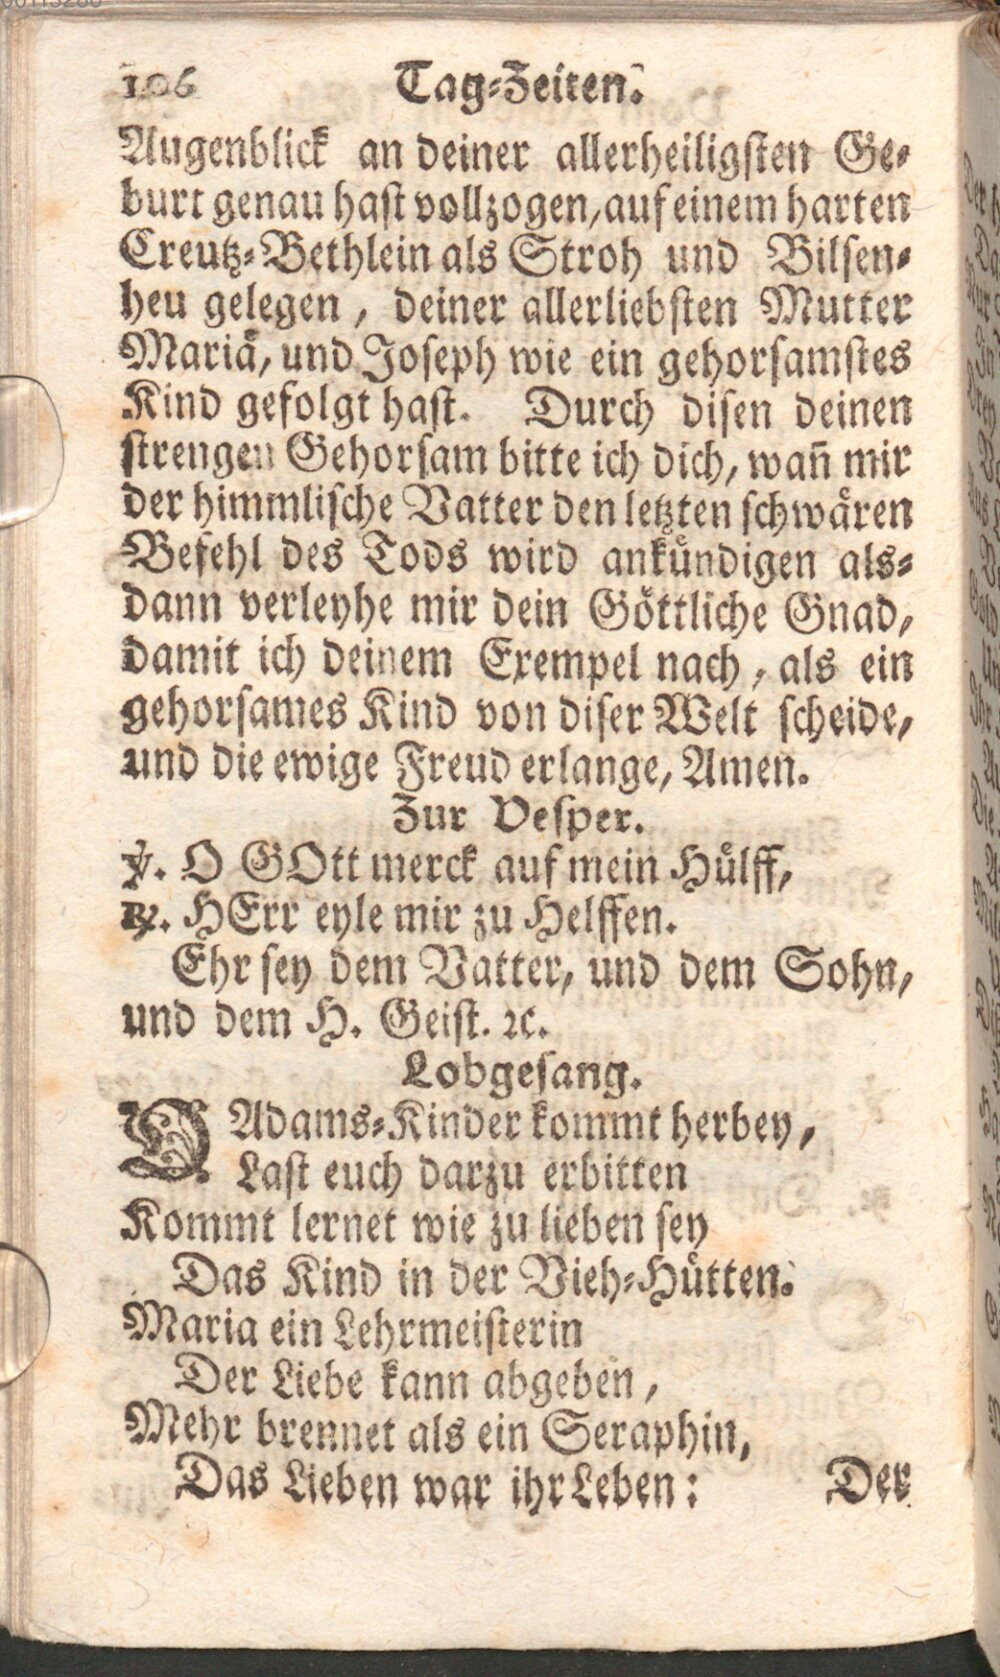 106 Tag-Zeiten.
Augenblick an deiner allerheiligsten Ge-
burt genau hast vollzogen, auf einem harten
Creutz-Bethlein als Stroh und Bilsen-
heu gelegen, deiner allerliebsten Mutter
Mariä, und Joseph wie ein gehorsamstes
Kind gefolgt hast. Durch disen deinen
strengen Gehorsam bitte ich dich, wan̄ mir
der himmlische Vatter den letzten schwären
Befehl des Tods wird ankündigen als-
dann verleyhe mir dein Göttliche Gnad,
damit ich deinem Exempel nach, als ein
gehorsames Kind von diser Welt scheide,
und die ewige Freud erlange, Amen.
Zur Vesper.
℣. O GOtt merck auf mein Hülff,
℟. HErr eyle mir zu Helffen.
Ehr sey dem Vatter, und dem Sohn,
und dem H. Geist. ꝛc.
Lobgesang.
O Adams-Kinder kommt herbey,
Last euch darzu erbitten
Kommt lernet wie zu lieben sey
Das Kind in der Vieh-Hütten.
Maria ein Lehrmeisterin
Der Liebe kann abgeben,
Mehr brennet als ein Seraphin,
Das Lieben war ihr Leben:
Der